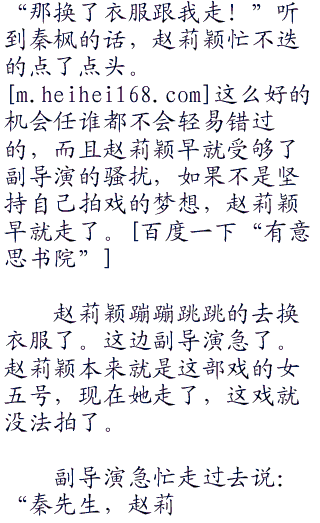 “那换了衣服跟我走！”听
到秦枫的话，赵莉颖忙不迭
的点了点头。
[m.heihei168.com]这么好的
机会任谁都不会轻易错过
的，而且赵莉颖早就受够了
副导演的骚扰，如果不是坚
持自己拍戏的梦想，赵莉颖
早就走了。[百度一下“有意
思书院”]
赵莉颖蹦蹦跳跳的去换
衣服了。这边副导演急了。
赵莉颖本来就是这部戏的女
五号，现在她走了，这戏就
没法拍了。
副导演急忙走过去说：
“秦先生，赵莉